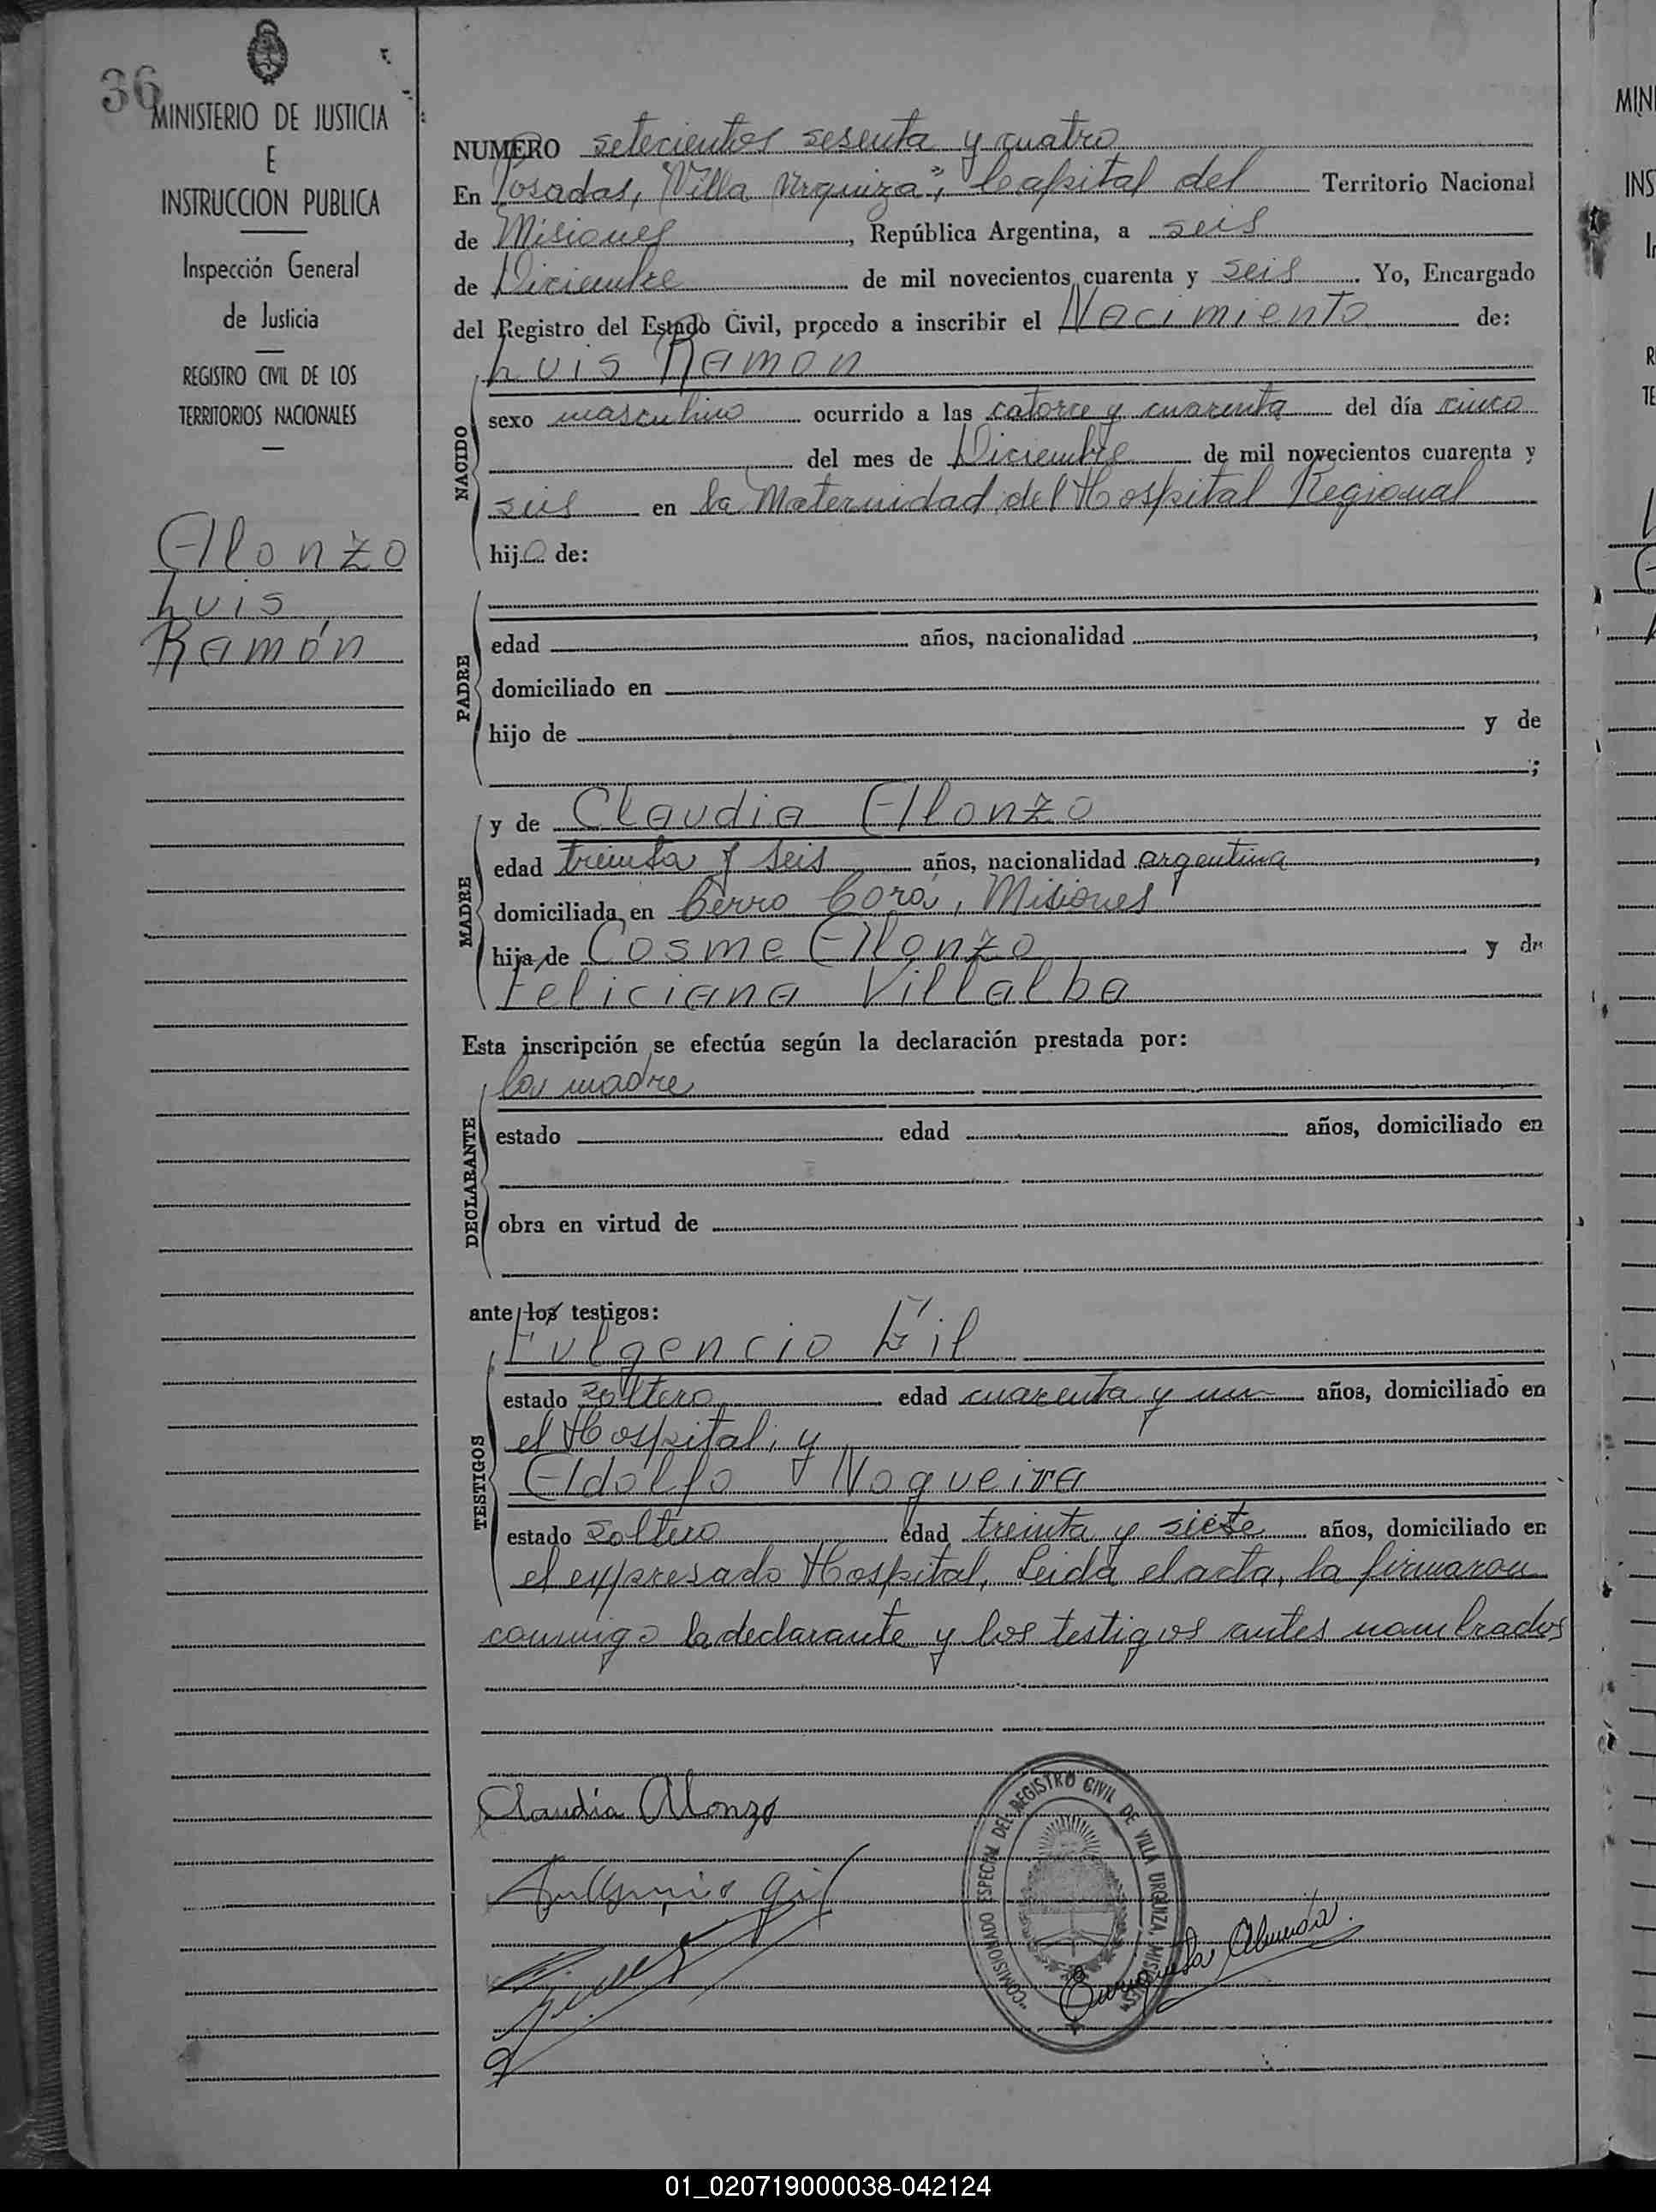 36
MINISTERIO DE JUSTICIA
E
INSTRUCCION PUBLICA
Inspección General
de Justicia
REGISTRO CIVIL DE LOS
TERRITORIOS NACIONALES
Alonzo
Luis
Ramón
NUMERO setecientos sesenta y cuatro
En Posadas, "Villa Urquiza", Capital del Territorio Nacional
de Misiones, República Argentina, a seis
de Diciembre de mil novecientos cuarenta y seis. Yo, Encargado
del Registro del Estado Civil, procedo a inscribir el Nacimiento de:
Luis Ramón
NACIDO
sexo masculino ocurrido a las catorce y cuarenta del día cinco
del mes de Diciembre de mil novecientos cuarenta y
seis en la Maternidad del Hospital Regional
hijo de:
PADRE
edad años, nacionalidad ,
domiciliado en
hijo de y de
;
MADRE
y de Claudia Alonzo
edad treinta y seis años, nacionalidad argentina,
domiciliada en Cerro Corá, Misiones
hija de Cosme Alonzo y de
Feliciana Villalba
Esta inscripción se efectúa según la declaración prestada por:
DECLARANTE
la madre
estado edad años, domiciliado en
obra en virtud de
ante los testigos:
TESTIGOS
Fulgencio Gil
estado soltero edad cuarenta y un años, domiciliado en
el Hospital, y
Adolfo Nogueira
estado soltero edad treinta y siete años, domiciliado en
el expresado Hospital. Leida el acta, la firmaron
conmigo la declarante y los testigos antes nombrados
Claudia Alonzo
Fulgencio Gil
COMISIONADO ESPECIAL DEL REGISTRO CIVIL DE VILLA URQUIZA, MISIONES
Enriqueta Almeda
01_020719000038-042124